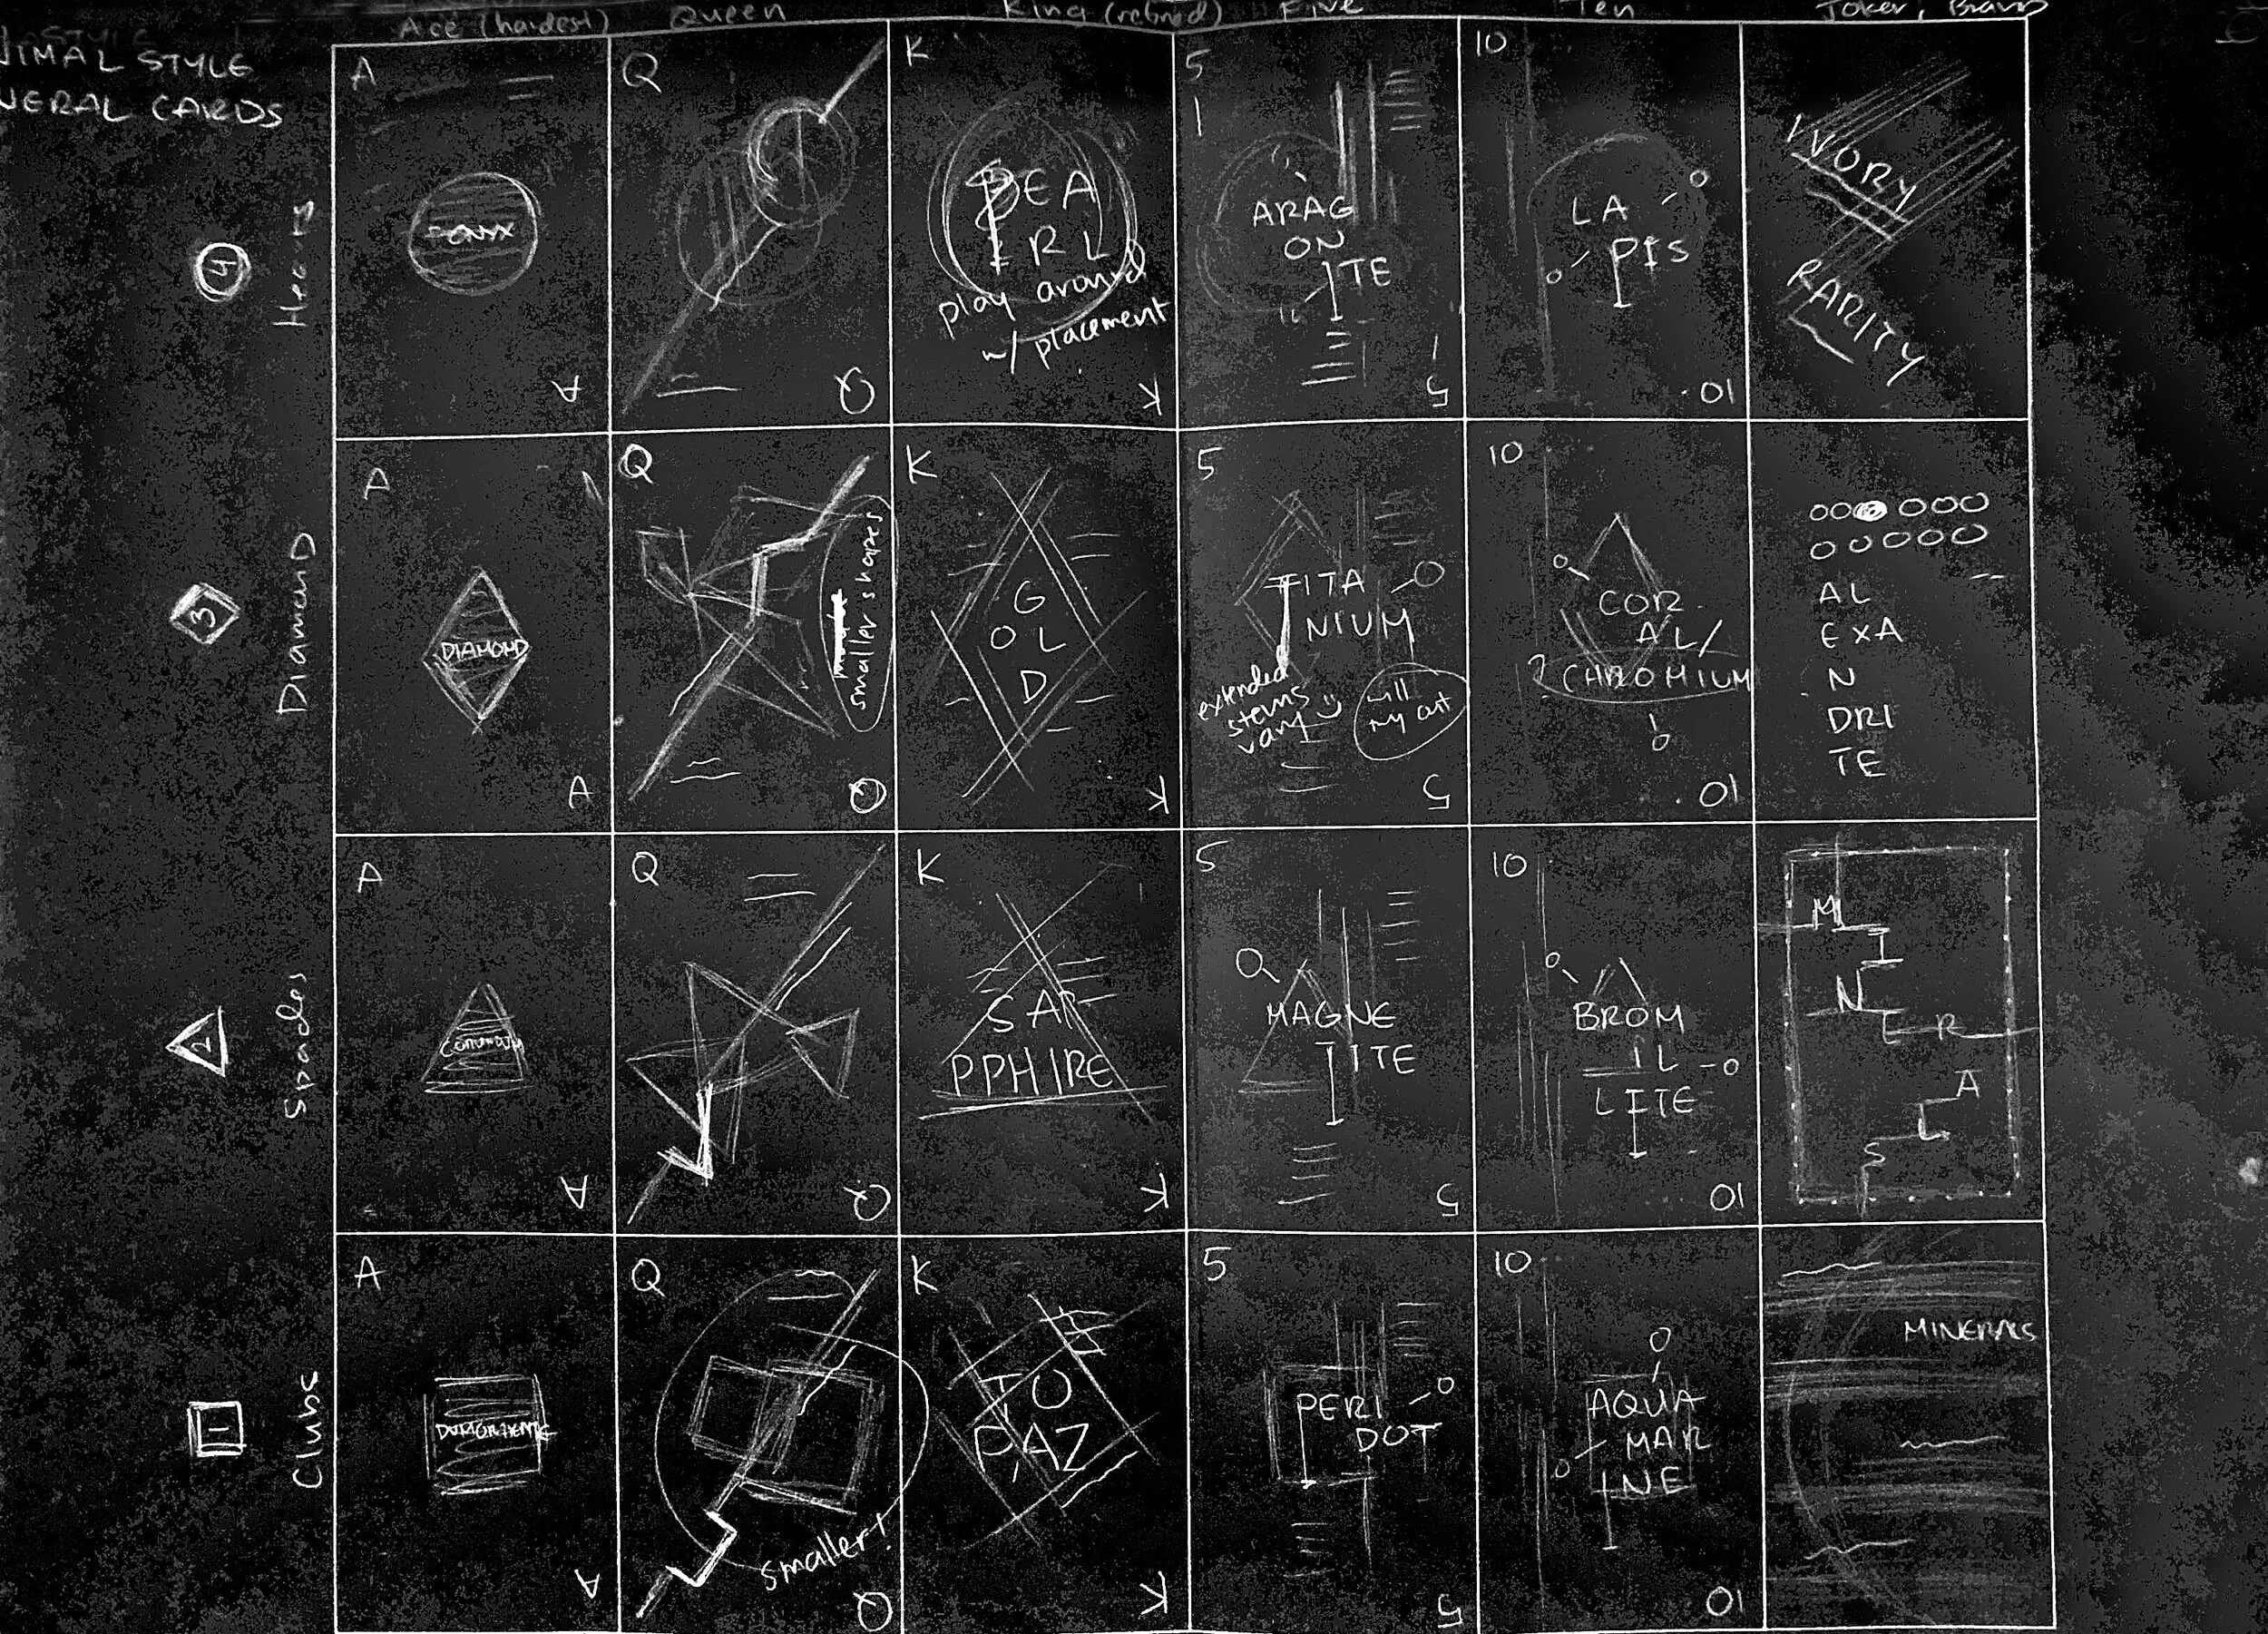 Ace (hardest) Queen King (refined) Five Ten Joker, Brand
NIMAL STYLE
NERAL CARDS
4
Hearts
A
ONYX
A
Q
Q
K
PEA
RL
play around
w/ placement
K
5
ARAG
ON
ITE
5
10
LA
PIS
10
IVORY
RARITY
3
Diamond
A
DIAMOND
A
Q
smaller shapes
Q
K
G
OL
D
K
5
TITA
NIUM
extended
stems
vary
will
try out
5
10
COR
AL/
? CHROMIUM
10
AL
EXA
N
DRI
TE
2
Spades
A
A
Q
Q
K
SAP
PPHIRE
K
5
MAGNE
TITE
5
10
BROM
IL
LITE
10
M
I
N
E R
A
L
S
1
Clubs
A
A
Q
smaller!
Q
K
TO
PAZ
K
5
PERI
DOT
5
10
AQUA
MAR
INE
10
MINERALS